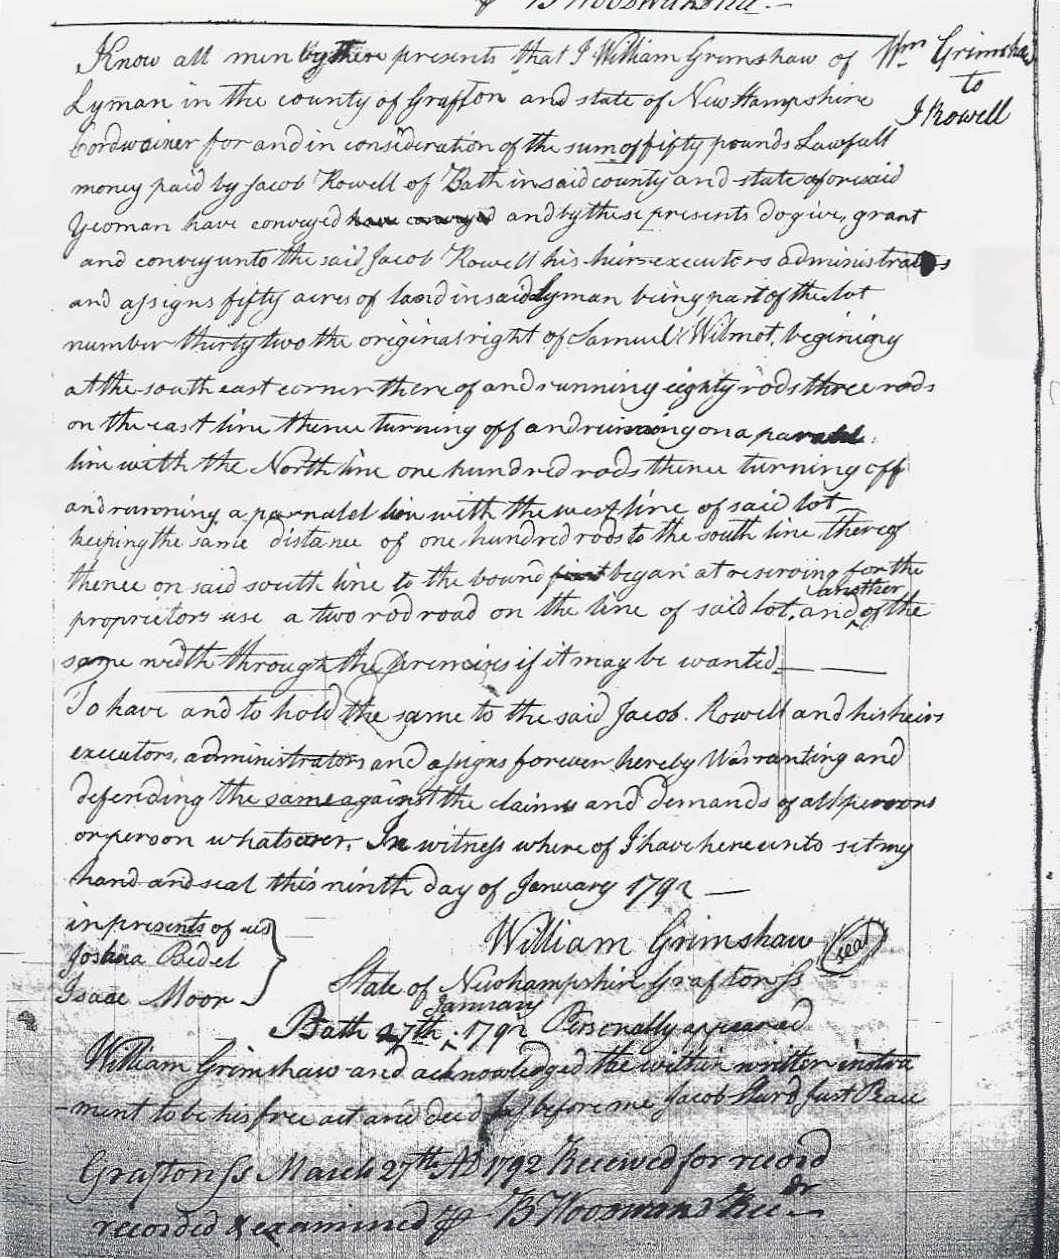 Know all men by these presents that I William Grimshaw of
Wm Grimshaw
to
J Rowell
Lyman in the county of Grafton and state of New Hampshire
Cordwainer for and in consideration of the sum of fifty pounds Lawfull
money paid by Jacob Rowell of Bath in said county and state aforesaid
Yeoman have conveyed have conveyed and by these presents do give, grant
and convey unto the said Jacob Rowell his heirs executors administrators
and assigns fifty acres of land in said Lyman being part of the lot
number thirty two the original right of Samuel Wilmot, begining
at the south east corner there of and running eighty rods three rods
on the east line thence turning off and running on a
line with the North line one hundred rods thence turning off
and running a parralel line with the west line of said lot
keeping the same distance of one hundred rods to the south line thereof
thence on said south line to the bound first began at reserving for the
another
proprietors use a two rod road on the line of said lot, and of the
same width through the premises if it may be wanted
To have and to hold the same to the said Jacob Rowell and his heirs
executors, administrators and assigns forever hereby Warranting and
defending the same against the claims and demands of all persons
or person whatsoever. In witness where of I have here unto set my
hand and seal this ninth day of January 1792
in presents of us
Joshua Bedel
Isaac Moor
William Grimshaw (seal)
State of Newhampshire Grafton Ss
January
Bath 27th 1792 Personally appeared
William Grimshaw and acknowledged the within written instru
ment to be his free act and deed before me Jacob Hurd Just Peace
Grafton Ss March 27th AD 1792 Received for record
recorded & examined B Woodward Recdr